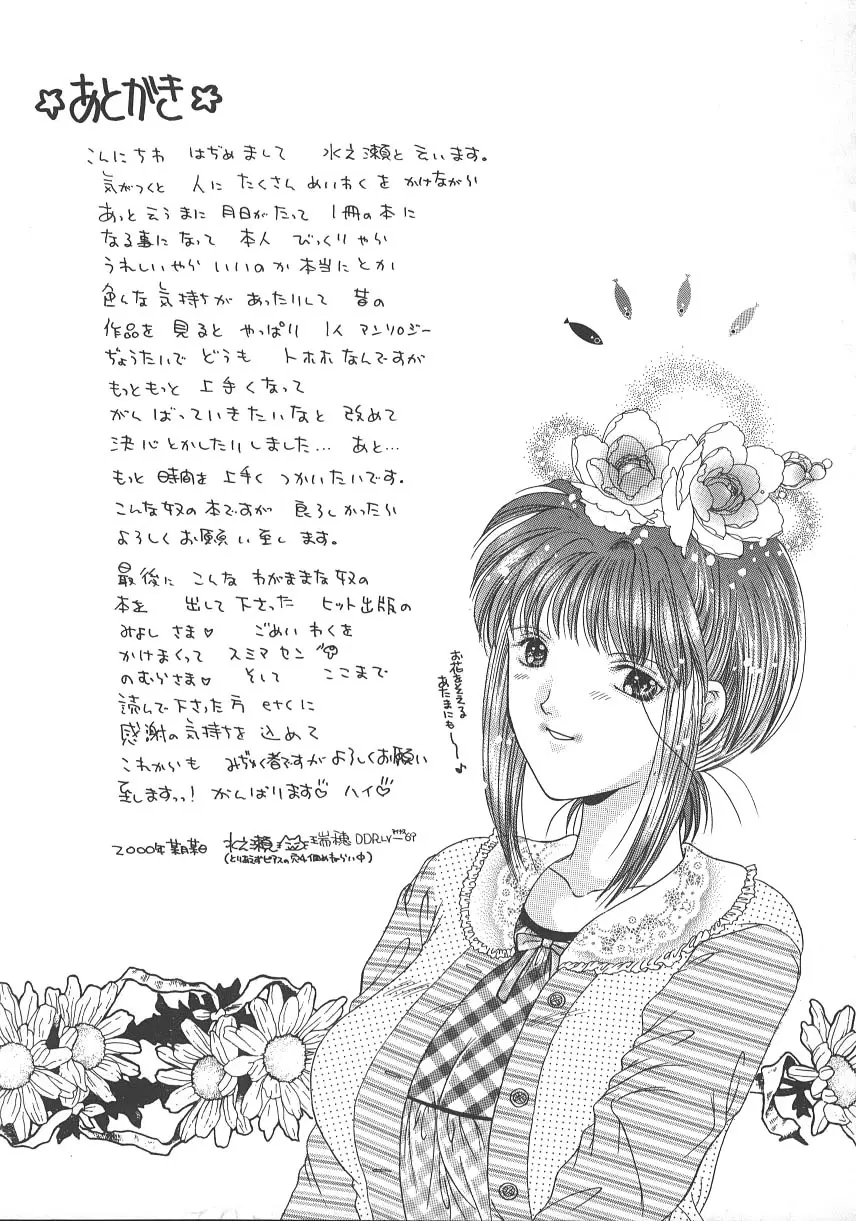 ☆あとがき☆
こんにちわ はぢめまして 水之瀬と云います。
気がつくと 人に たくさん めいわくを かけながら
あっと云うまに 月日がたって 1冊の本に
なる事になって 本人 びっくりやら
うれしいやら いいのか本当にとか
色々な気持ちが あったりして 昔の
作品を 見ると やっぱり 1人 アンソロジー
ぢょうたいで どうも トホホなんですが
もっともっと 上手くなって
がんばっていきたいなと 改めて
決心とかしたりしました… あと…
もっと 時間を 上手く つかいたいです。
こんな奴の本ですが 良ろしかったら
よろしくお願い至します。
最後に こんな わがままな奴の
本を 出して下さった ヒット出版の
みよしさま♡ ごめいわくを
かけまくって スミマセン
のむらさま♡ そして ここまで
読んで下さった方 etcに
感謝の気持ちを 込めて
これからも みぢゅく者ですがよろしくお願い
至しますっ! がんばります♡ ハイ♡
2000年 水之瀬 瑞穂 DDRLV
(とりあえずピアスの穴4個めねらい中)
お花をそえる
あたまにも〜〜♪